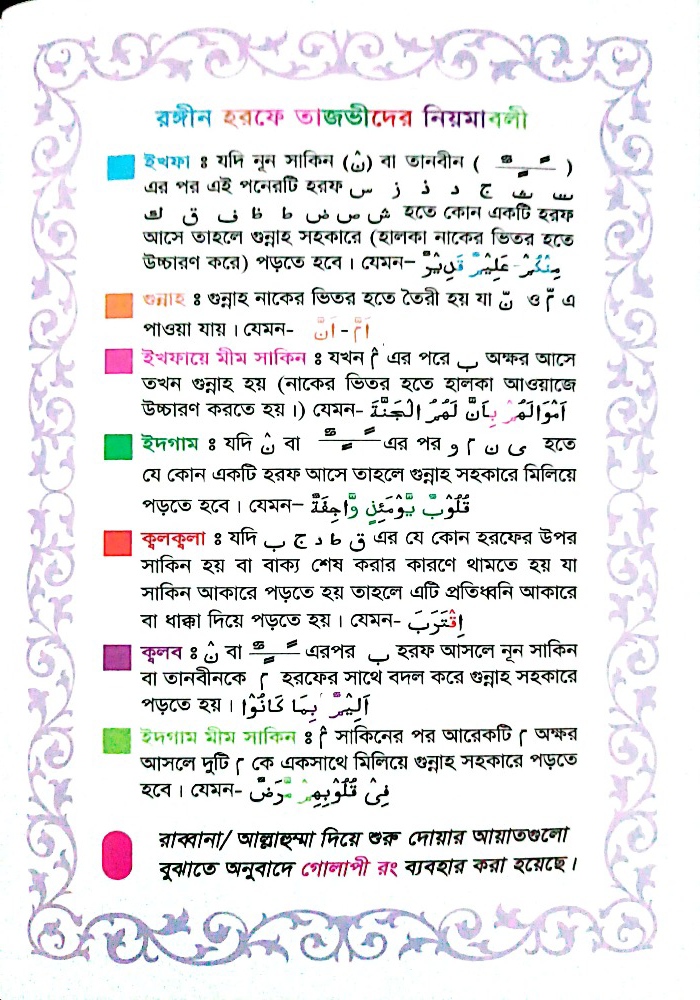 রঙ্গীন হরফে তাজভীদের নিয়মাবলী
ইখফা ঃ যদি নূন সাকিন (نْ) বা তানবীন ( ـًـٍـٌ )
এর পর এই পনেরটি হরফ ت ث ج د ذ ز س
ش ص ض ط ظ ف ق ك হতে কোন একটি হরফ
আসে তাহলে গুন্নাহ সহকারে (হালকা নাকের ভিতর হতে
উচ্চারণ করে) পড়তে হবে। যেমন– مِنْكُمْ - عَلِيْمٌ قَدِيْرٌ
গুন্নাহ ঃ গুন্নাহ নাকের ভিতর হতে তৈরী হয় যা نّ ও مّ এ
পাওয়া যায়। যেমন- اَمَّ - اَنَّ
ইখফায়ে মীম সাকিন ঃ যখন مْ এর পরে ب অক্ষর আসে
তখন গুন্নাহ হয় (নাকের ভিতর হতে হালকা আওয়াজে
উচ্চারণ করতে হয়।) যেমন- اَمْوَالَهُمْ بِاَنَّ لَهُمُ الْجَنَّةَ
ইদগাম ঃ যদি نْ বা ـًـٍـٌ এর পর ى ن م و হতে
যে কোন একটি হরফ আসে তাহলে গুন্নাহ সহকারে মিলিয়ে
পড়তে হবে। যেমন– قُلُوْبٌ يَّوْمَئِذٍ وَّاجِفَةٌ
ক্বলক্বলা ঃ যদি ق ط د ج ب এর যে কোন হরফের উপর
সাকিন হয় বা বাক্য শেষ করার কারণে থামতে হয় যা
সাকিন আকারে পড়তে হয় তাহলে এটি প্রতিধ্বনি আকারে
বা ধাক্কা দিয়ে পড়তে হয়। যেমন- اِقْتَرَبَ
ক্বলব ঃ نْ বা ـًـٍـٌ এরপর ب হরফ আসলে নূন সাকিন
বা তানবীনকে م হরফের সাথে বদল করে গুন্নাহ সহকারে
পড়তে হয়। اَلِيْمٌ بِمَا كَانُوْا
ইদগাম মীম সাকিন ঃ مْ সাকিনের পর আরেকটি م অক্ষর
আসলে দুটি م কে একসাথে মিলিয়ে গুন্নাহ সহকারে পড়তে
হবে। যেমন- فِىْ قُلُوْبِهِمْ مَّرَضٌ
রাব্বানা/ আল্লাহুম্মা দিয়ে শুরু দোয়ার আয়াতগুলো
বুঝাতে অনুবাদে গোলাপী রং ব্যবহার করা হয়েছে।